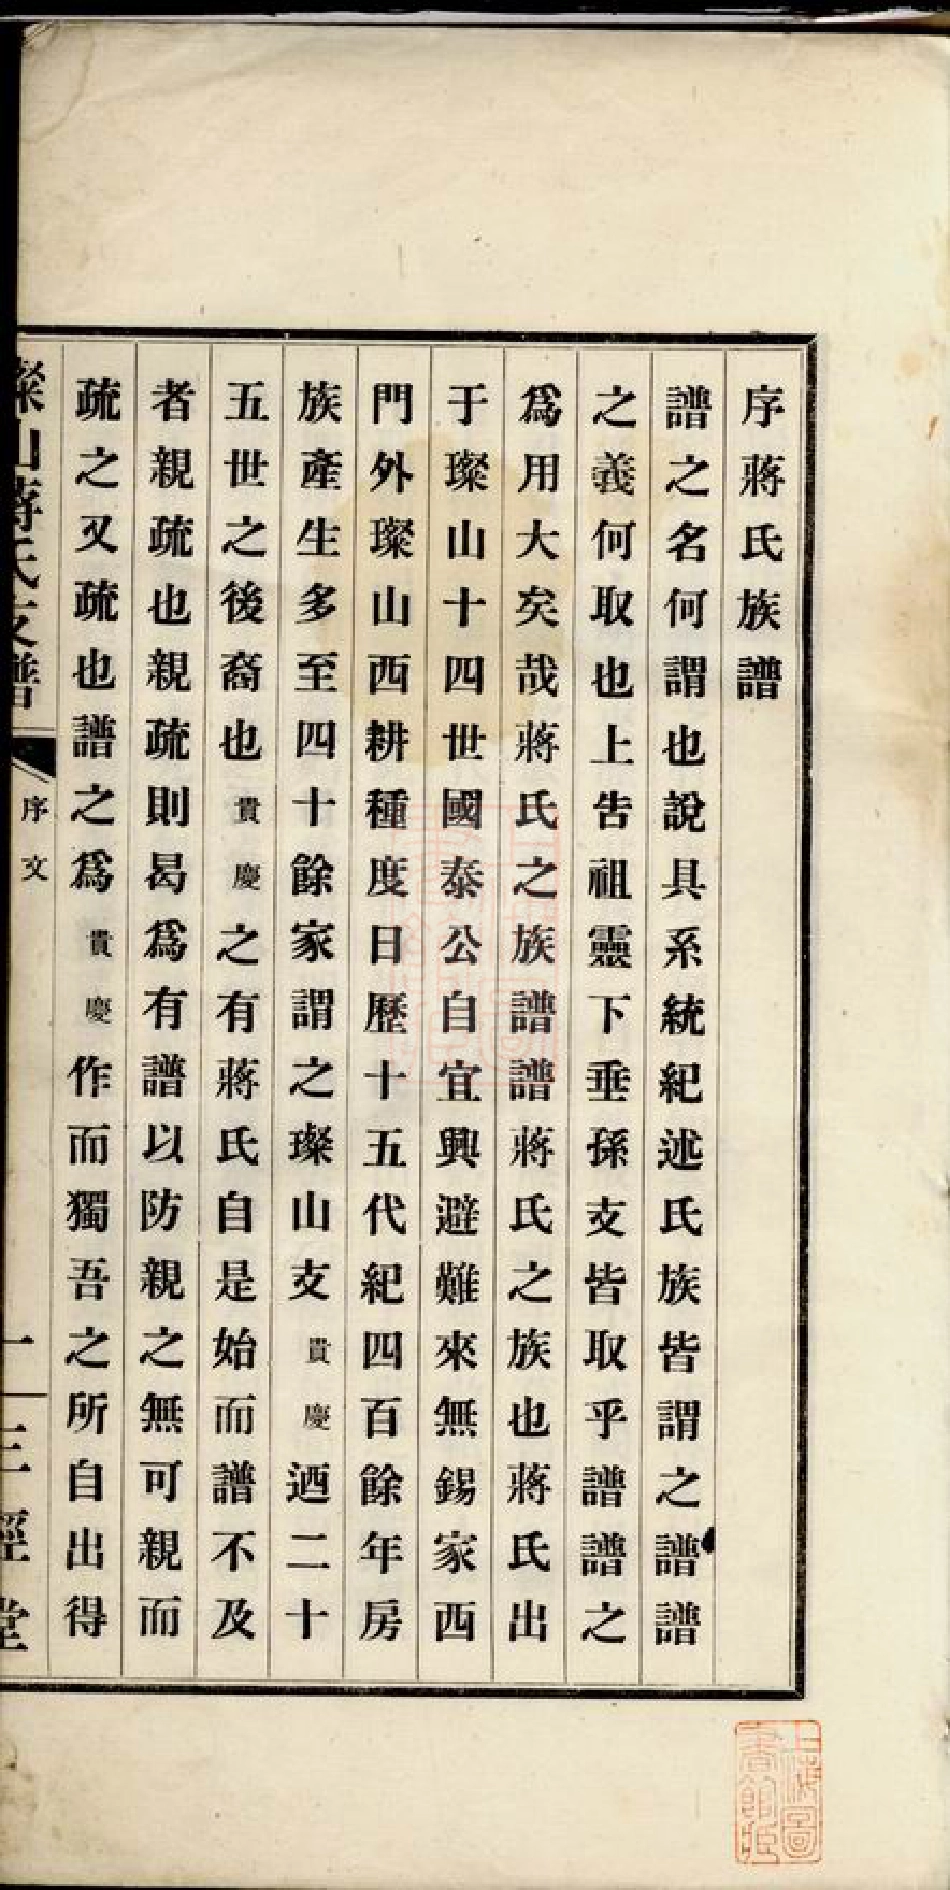 序蔣氏族譜
譜之名何謂也說具系統紀述氏族皆謂之譜譜
之義何取也上告祖靈下垂孫支皆取乎譜譜之
爲用大矣哉蔣氏之族譜譜蔣氏之族也蔣氏出
于璨山十四世國泰公自宜興避難來無錫家西
門外璨山西耕種度日歷十五代紀四百餘年房
族產生多至四十餘家謂之璨山支貴慶迺二十
五世之後裔也貴慶之有蔣氏自是始而譜不及
者親疏也親疏則曷爲有譜以防親之無可親而
疏之又疏也譜之爲貴慶作而獨吾之所自出得
璨山蔣氏支譜
序文
一
三徑堂
上海圖書館藏